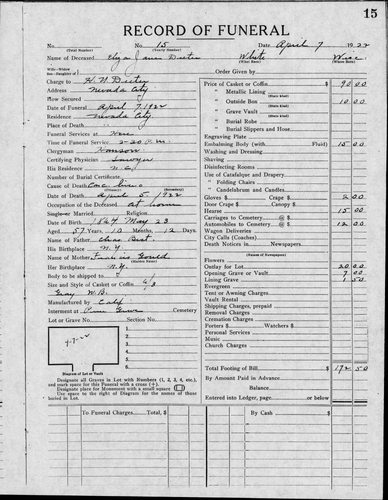 15
RECORD OF FUNERAL
No. No. 15 Date April 7 1922
(Total Number) (Yearly Number)
Name of Deceased Eliza Jane Deeter White Wise.
Order Given by
Charge to H. N. Deeter
Address Nevada City
How Secured
Date of Funeral April 7, 1922
Residence Nevada City
Place of Death
Funeral Services at Home
Time of Funeral Service 2-30 P.m.
Clergyman
Certifying Physician Sawyer
His Residence N. C.
Number of Burial Certificate
Cause of Death
Date of Death April 5, 1922
Occupation of the Deceased at home
Single or Married Religion
Date of Birth 1864 May 23
Aged 57 Years 10 Months 12 Days
Name of Father Chas Best
His Birthplace N.Y.
Name of Mother Francis Gould
Her Birthplace N.Y.
Body to be shipped to
Size and Style of Casket or Coffin 6/3
Gray W. B.
Manufactured by Calif
Interment at Pine Grove Cemetery
Lot or Grave No. Section No.
4-7-22
Diagram of Lot or Vault
Designate all Graves in Lot with Numbers (1, 2, 3, 4, etc.), and mark space for this Funeral with a cross (+).
Designate place for Monument with a small square
Use space to the right of Diagram for the names of those buried in Lot.
Price of Casket or Coffin $ 90 00
" Metallic Lining
(State kind)
" Outside Box 10 00
(State kind)
" Grave Vault
(State kind)
" Burial Robe
(State kind)
" Burial Slippers and Hose
Engraving Plate
Embalming Body (with Fluid) 15 00
Washing and Dressing
Shaving
Disinfecting Rooms
Use of Catafalque and Drapery
" Folding Chairs
" Candelabrum and Candles
Gloves $ Crape $ 2 00
Door Crape $ Canopy $
Hearse 15 00
Carriages to Cemetery @ $
Automobiles to Cemetery @ $ 12 00
Wagon Deliveries
City Calls (Coaches)
Death Notices in Newspapers
(Names of Newspapers)
Flowers
Outlay for Lot 20 00
Opening Grave or Vault 7 00
Lining Grave 1 50
Evergreen
Tent or Awning Charges
Vault Rental
Shipping Charges, prepaid
Removal Charges
Cremation Charges
Porters $ Watchers $
Personal Services
Music
Church Charges
Total Footing of Bill $ 172 50
By Amount Paid in Advance
Balance
Entered into Ledger, page or below
To Funeral Charges, Total, $ By Cash $